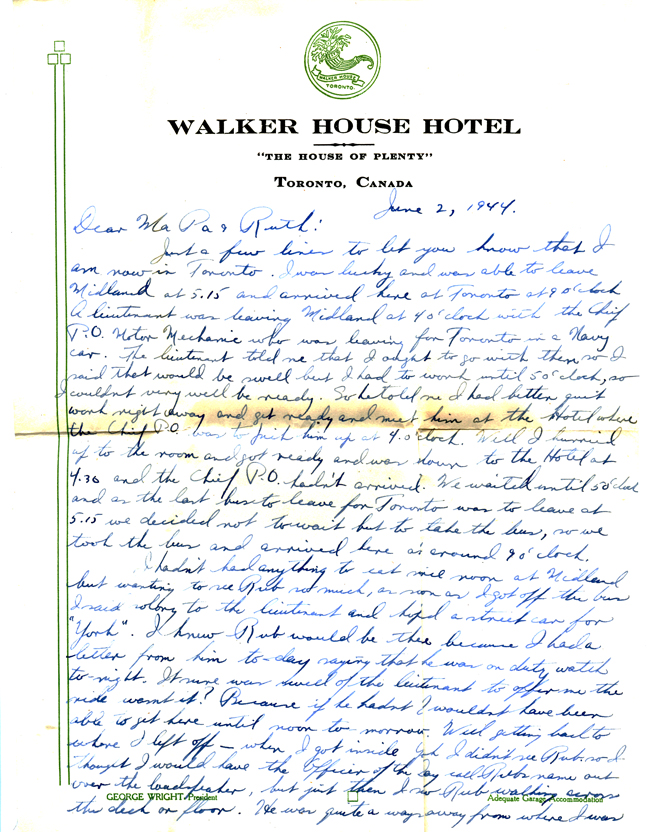 WALKER HOUSE
TORONTO.
WALKER HOUSE HOTEL
"THE HOUSE OF PLENTY"
TORONTO, CANADA
June 2, 1944.
Dear Ma Pa & Ruth:
Just a few lines to let you know that I
am now in Toronto. I was lucky and was able to leave
Midland at 5.15 and arrived here at Toronto at 9 o'clock
A lieutenant was leaving Midland at 4 o'clock with the Chief
P.O. Motor Mechanic who was leaving for Toronto in a Navy
car. The lieutenant told me that I ought to go with them so I
said that would be swell but I had to work until 5 o'clock, so
I couldn't very well be ready. So he told me I had better quit
work right away and get ready and meet him at the Hotel where
the Chief P.O. was to pick him up at 4.o'clock. Well I hurried
up to the room and got ready and was down to the Hotel at
4.30 and the Chief P.O. hadn't arrived. We waited until 5 o'clock
and as the last bus to leave for Toronto was to leave at
5.15 we decided not to wait but to take the bus, so we
took the bus and arrived here at around 9 o'clock.
I hadn't had anything to eat since noon at Midland
but wanting to see Rub so much, as soon as I got off the bus
I said so long to the lieutenant and hopd a street car for
"York". I knew Rub would be there because I had a
letter from him to-day saying that he was on duty watch
to-night. It sure was swell of the lieutenant to offer me the
ride wasn't it? Because if he hadn't I wouldn't have been
able to get here until noon to-morrow. Well getting back to
where I left off - when I got inside I didn't see Rub. so I
thought I would have the Officer of the Day call Rub's name out
over the loudspeaker, but just then I saw Rub walking across
the deck or floor. He was quite a ways away from where I was
GEORGE WRIGHT, President
Adequate Garage Accommodation